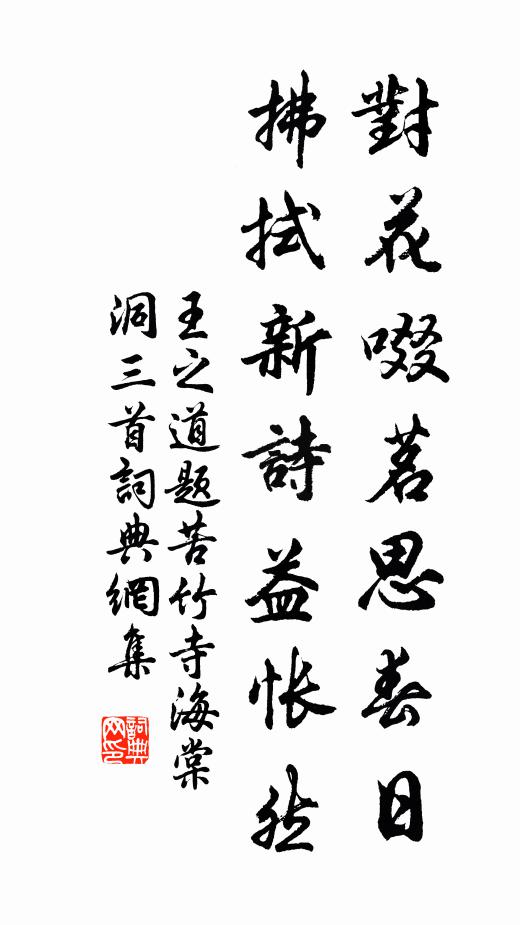 對花啜茗思春日
拂拭新詩益悵然
王之道題苦竹寺海棠
洞三首詞典網集
詞典
网印